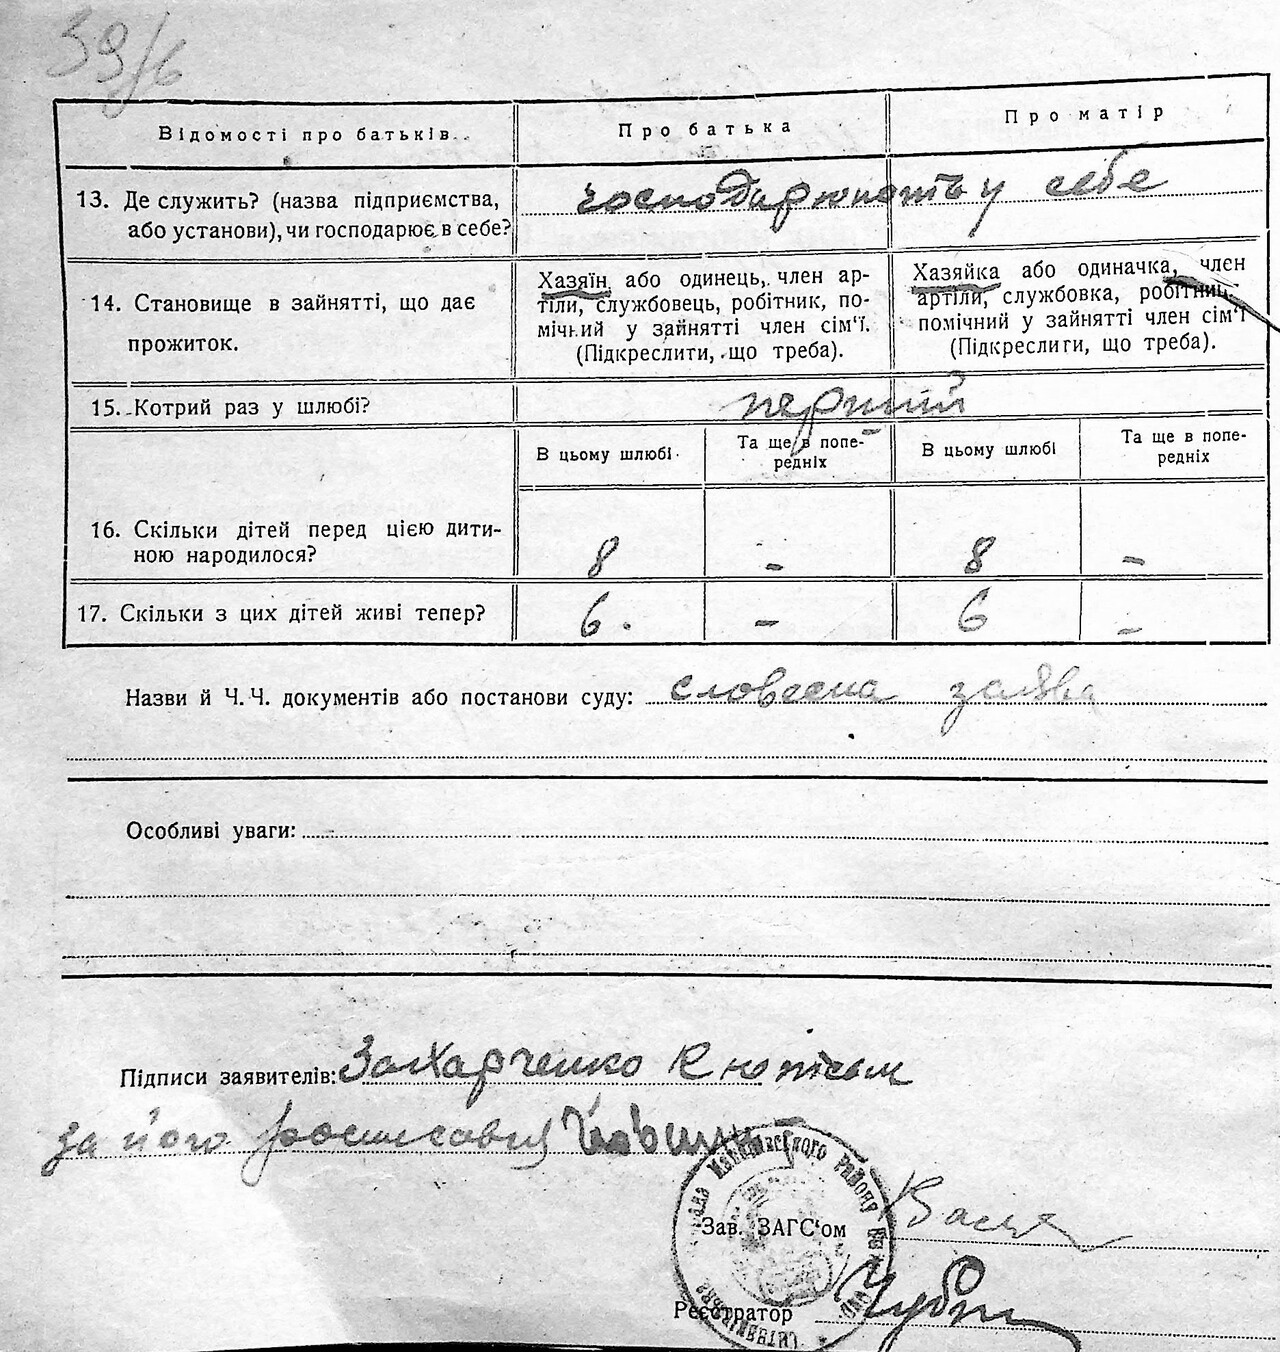 39/6
Відомості про батьків
Про батька
Про матір
13. Де служить? (назва підприємства,
або установи), чи господарює в себе?
господарюють у себе
14. Становище в зайнятті, що дає
прожиток.
Хазяїн, або одинець, член ар-
тіли, службовець, робітник, по-
мічний у зайнятті член сім'ї.
(Підкреслити, що треба).
Хазяйка або одиначка, член
артіли, службовка, робітниц.
помічний у зайнятті член сім'ї
(Підкреслити, що треба).
15. Котрий раз у шлюбі?
перший
В цьому шлюбі
Та ще в попе-
редніх
В цьому шлюбі
Та ще в попе-
редніх
16. Скільки дітей перед цією дити-
ною народилося?
8 - 8 -
17. Скільки з цих дітей живі тепер?
6 - 6 -
Назви й Ч.Ч. документів або постанови суду: словесна заява
Особливі уваги:
Підписи заявителів: Захарченко
за його росписався
району
Зав. ЗАГС'ом
Реєстратор